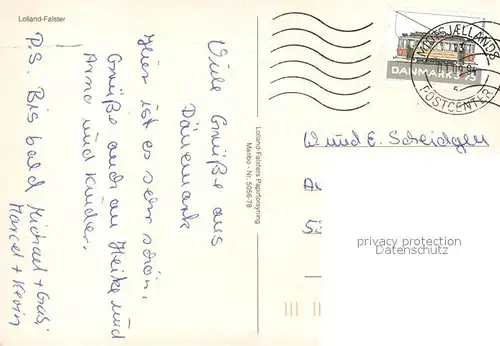 Lolland-Falster
Viele Grüße aus
Dänemark
Hier ist es sehr schön.
Grüße auch an Heike und
Arno und Kinder.
P.S. Bis bald Michael + Gabi
Marcel + Kevin
Lolland-Falsters Papirforsyning
Maribo - Nr. 5056-78
MIDTSJÆLLANDS
POSTCENTER
DANMARK
W und E. Scheidgen
privacy protection
Datenschutz